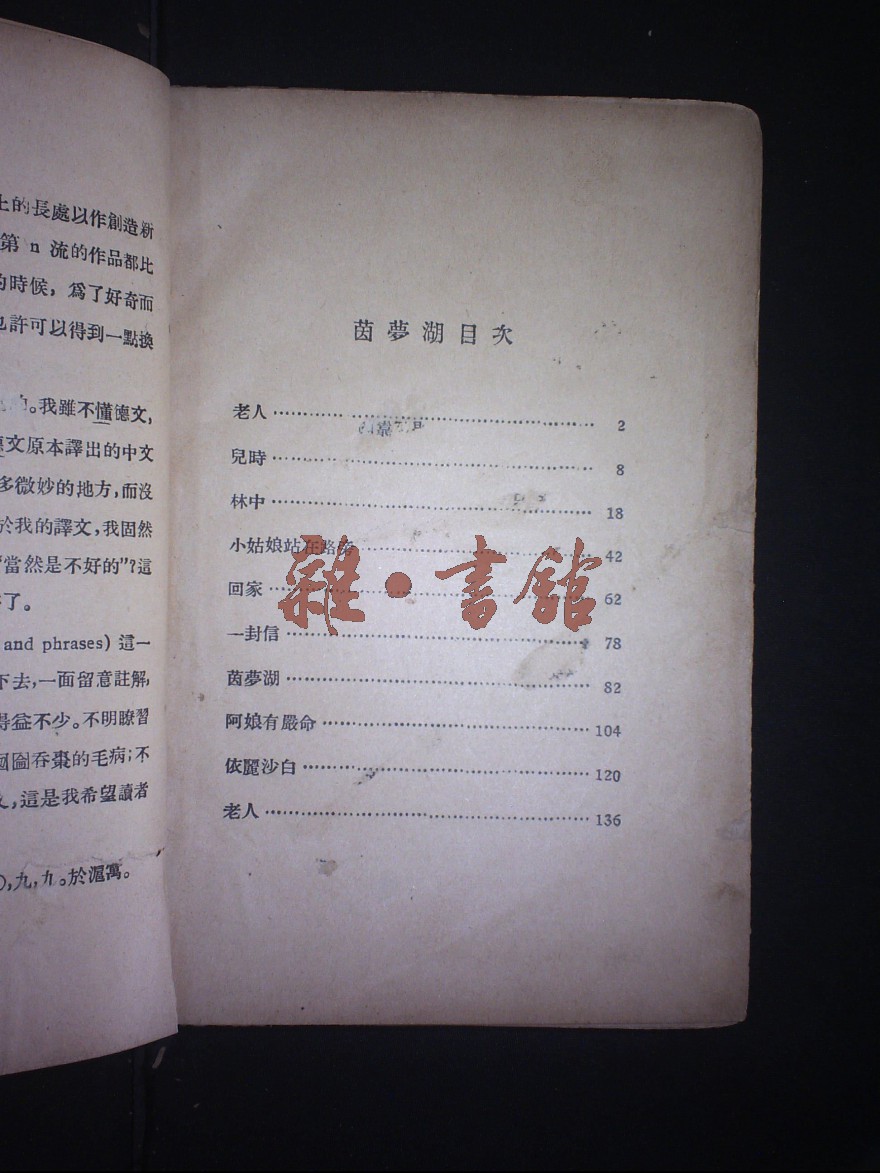 上的長處以作創造新
第 n 流的作品都比
的時候，爲了好奇而
也許可以得到一點換
。我雖不懂德文，
德文原本譯出的中文
多微妙的地方，而沒
於我的譯文，我固然
“當然是不好的”？這
了。
and phrases) 這一
下去，一面留意註解，
得益不少。不明瞭習
囫圇吞棗的毛病；不
文，這是我希望讀者
〇，九，九。於滬寓。
茵夢湖目次
老人 2
兒時 8
林中 18
小姑娘站在路旁 42
回家 62
一封信 78
茵夢湖 82
阿娘有嚴命 104
依麗沙白 120
老人 136
雜·書館